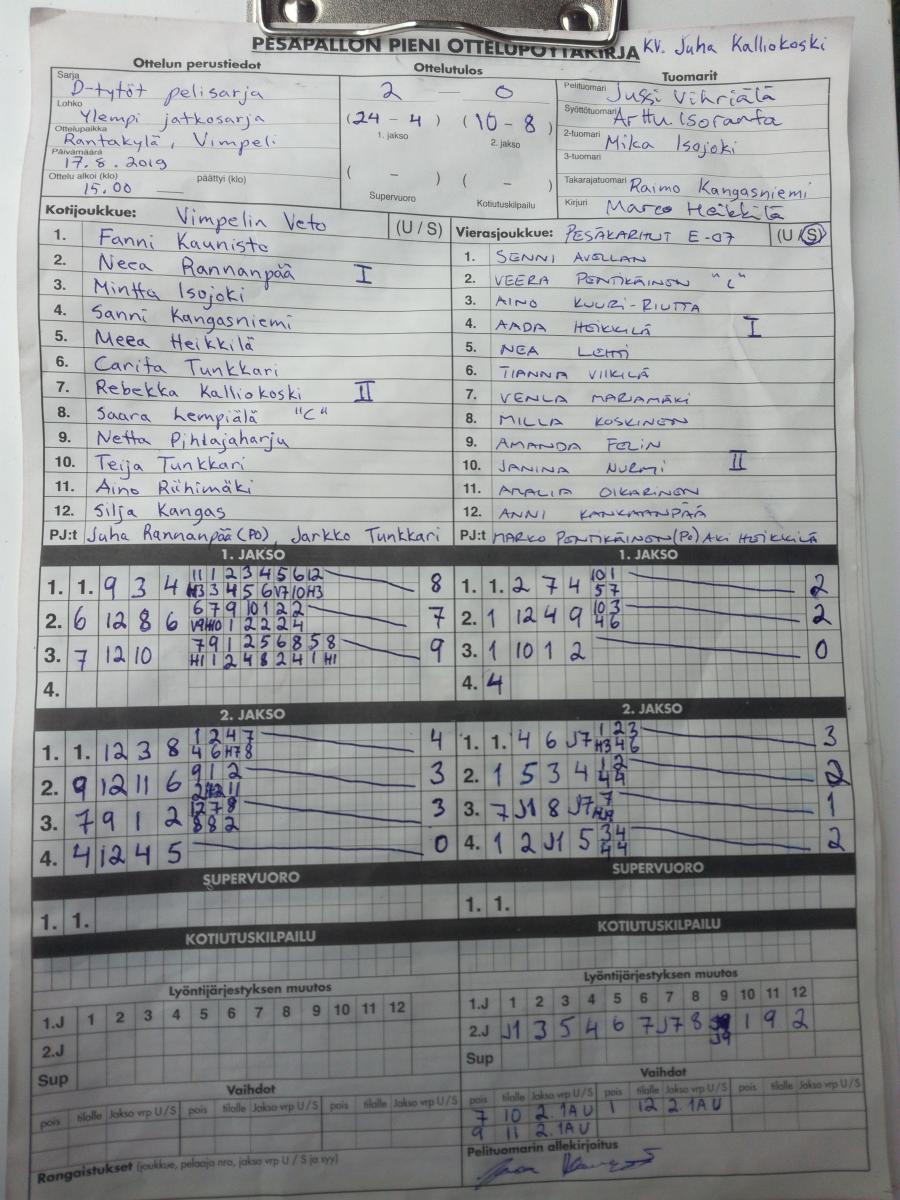 PESÄPALLON PIENI OTTELUPÖYTÄKIRJA KV. Juha Kalliokoski
Ottelun perustiedot
Sarja
D-tytöt pelisarja
Lohko
Ylempi jatkosarja
Ottelupaikka
Rantakylä, Vimpeli
Päivämäärä
17.8.2019
Ottelu alkoi (klo) päättyi (klo)
15.00 —
Ottelutulos
2 — 0
(24 - 4) (10 - 8)
1. jakso 2. jakso
( - ) ( - )
Supervuoro Kotiutuskilpailu
Tuomarit
Pelituomari Jussi Vihriälä
Syöttötuomari Arttu Isoranta
2-tuomari Mika Isojoki
3-tuomari
Takarajatuomari Raimo Kangasniemi
Kirjuri Marco Heikkilä
Kotijoukkue: Vimpelin Veto (U / S)
1. Fanni Kaunisto
2. Neea Rannanpää I
3. Mintta Isojoki
4. Sanni Kangasniemi
5. Meea Heikkilä
6. Carita Tunkkari
7. Rebekka Kalliokoski II
8. Saara Lempiälä "C"
9. Netta Pihlajaharju
10. Teija Tunkkari
11. Aino Riihimäki
12. Silja Kangas
PJ:t Juha Rannanpää (PO), Jarkko Tunkkari
Vierasjoukkue: PESÄKARHUT E-07 (U / S)
1. SENNI AVELLAN
2. VEERA PENTIKÄINEN "C"
3. AINO KUURI-RIUTTA
4. AADA HEIKKILÄ I
5. NEA LEHTI
6. TIANNA VIIKILÄ
7. VENLA MARJAMÄKI
8. MILLA KOSKINEN
9. AMANDA FELIN
10. JANINA NURMI II
11. AMALIA OIKARINEN
12. ANNI KANKAANPÄÄ
PJ:t MARKO PENTIKÄINEN (PO) AKI HEIKKILÄ
1. JAKSO
1. 1. 9 3 4 11 1 2 3 4 5 6 12 8
H3 3 4 5 6 V7 10 H3
2. 6 12 8 6 6 7 9 10 1 2 2 7
V9 H10 1 2 2 2 4
3. 7 12 10 7 9 1 2 5 6 8 5 8 9
H1 1 2 4 8 2 4 1 H1
4.
1. JAKSO
1. 1. 2 7 4 10 1 2
5 7
2. 1 12 4 9 10 3 2
4 6
3. 1 10 1 2 0
4. 4
2. JAKSO
1. 1. 12 3 8 1 2 4 7 4
4 6 H7 8
2. 9 12 11 6 9 1 2 3
3. 7 9 1 2 12 7 8 3
8 8 2
4. 4 12 4 5 0
2. JAKSO
1. 1. 4 6 J7 1 2 3 3
H3 4 6
2. 1 5 3 4 1 2 2
4 4
3. 7 J1 8 J7 7 1
4. 1 2 J1 5 3 4 2
4 4
SUPERVUORO
1. 1.
SUPERVUORO
1. 1.
KOTIUTUSKILPAILU
KOTIUTUSKILPAILU
Lyöntijärjestyksen muutos
1.J 1 2 3 4 5 6 7 8 9 10 11 12
2.J
Sup
Lyöntijärjestyksen muutos
1.J 1 2 3 4 5 6 7 8 9 10 11 12
2.J J1 3 5 4 6 7 J7 8 J9 1 9 2
Sup
Vaihdot
pois tilalle Jakso vrp U/S pois tilalle Jakso vrp U/S pois tilalle Jakso vrp U/S
Vaihdot
pois tilalle Jakso vrp U/S pois tilalle Jakso vrp U/S pois tilalle Jakso vrp U/S
7 10 2. 1A U 1 12 2. 1A U
9 11 2. 1A U
Rangaistukset (joukkue, pelaaja nro, jakso vrp U / S ja syy)
Pelituomarin allekirjoitus